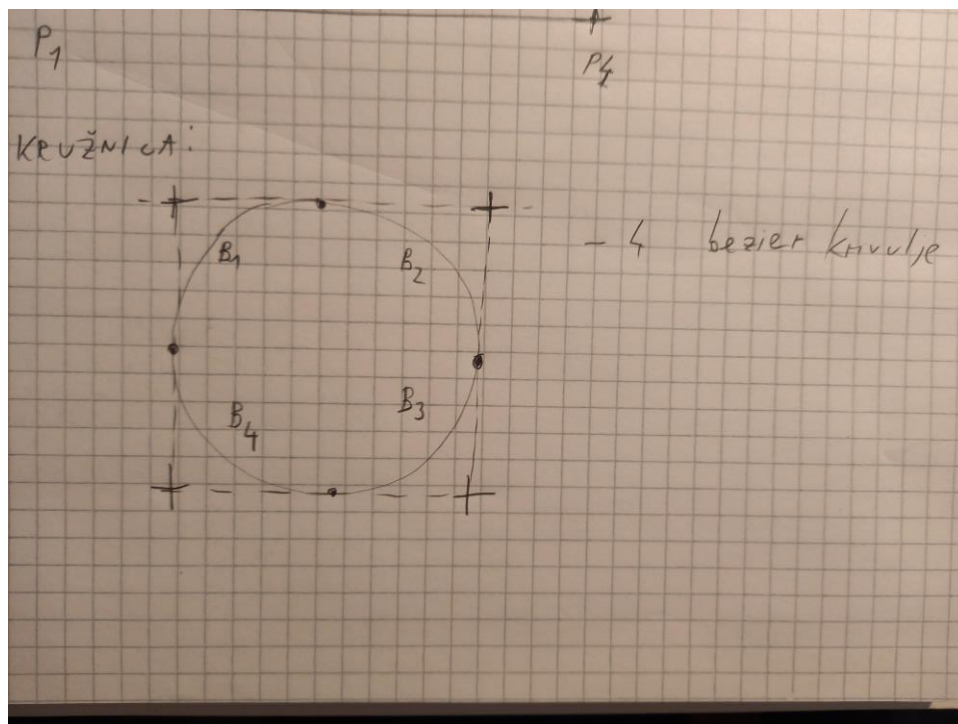 P1
P4
KRUŽNICA:
B1
B2
- 4 bezier krivulje
B3
B4